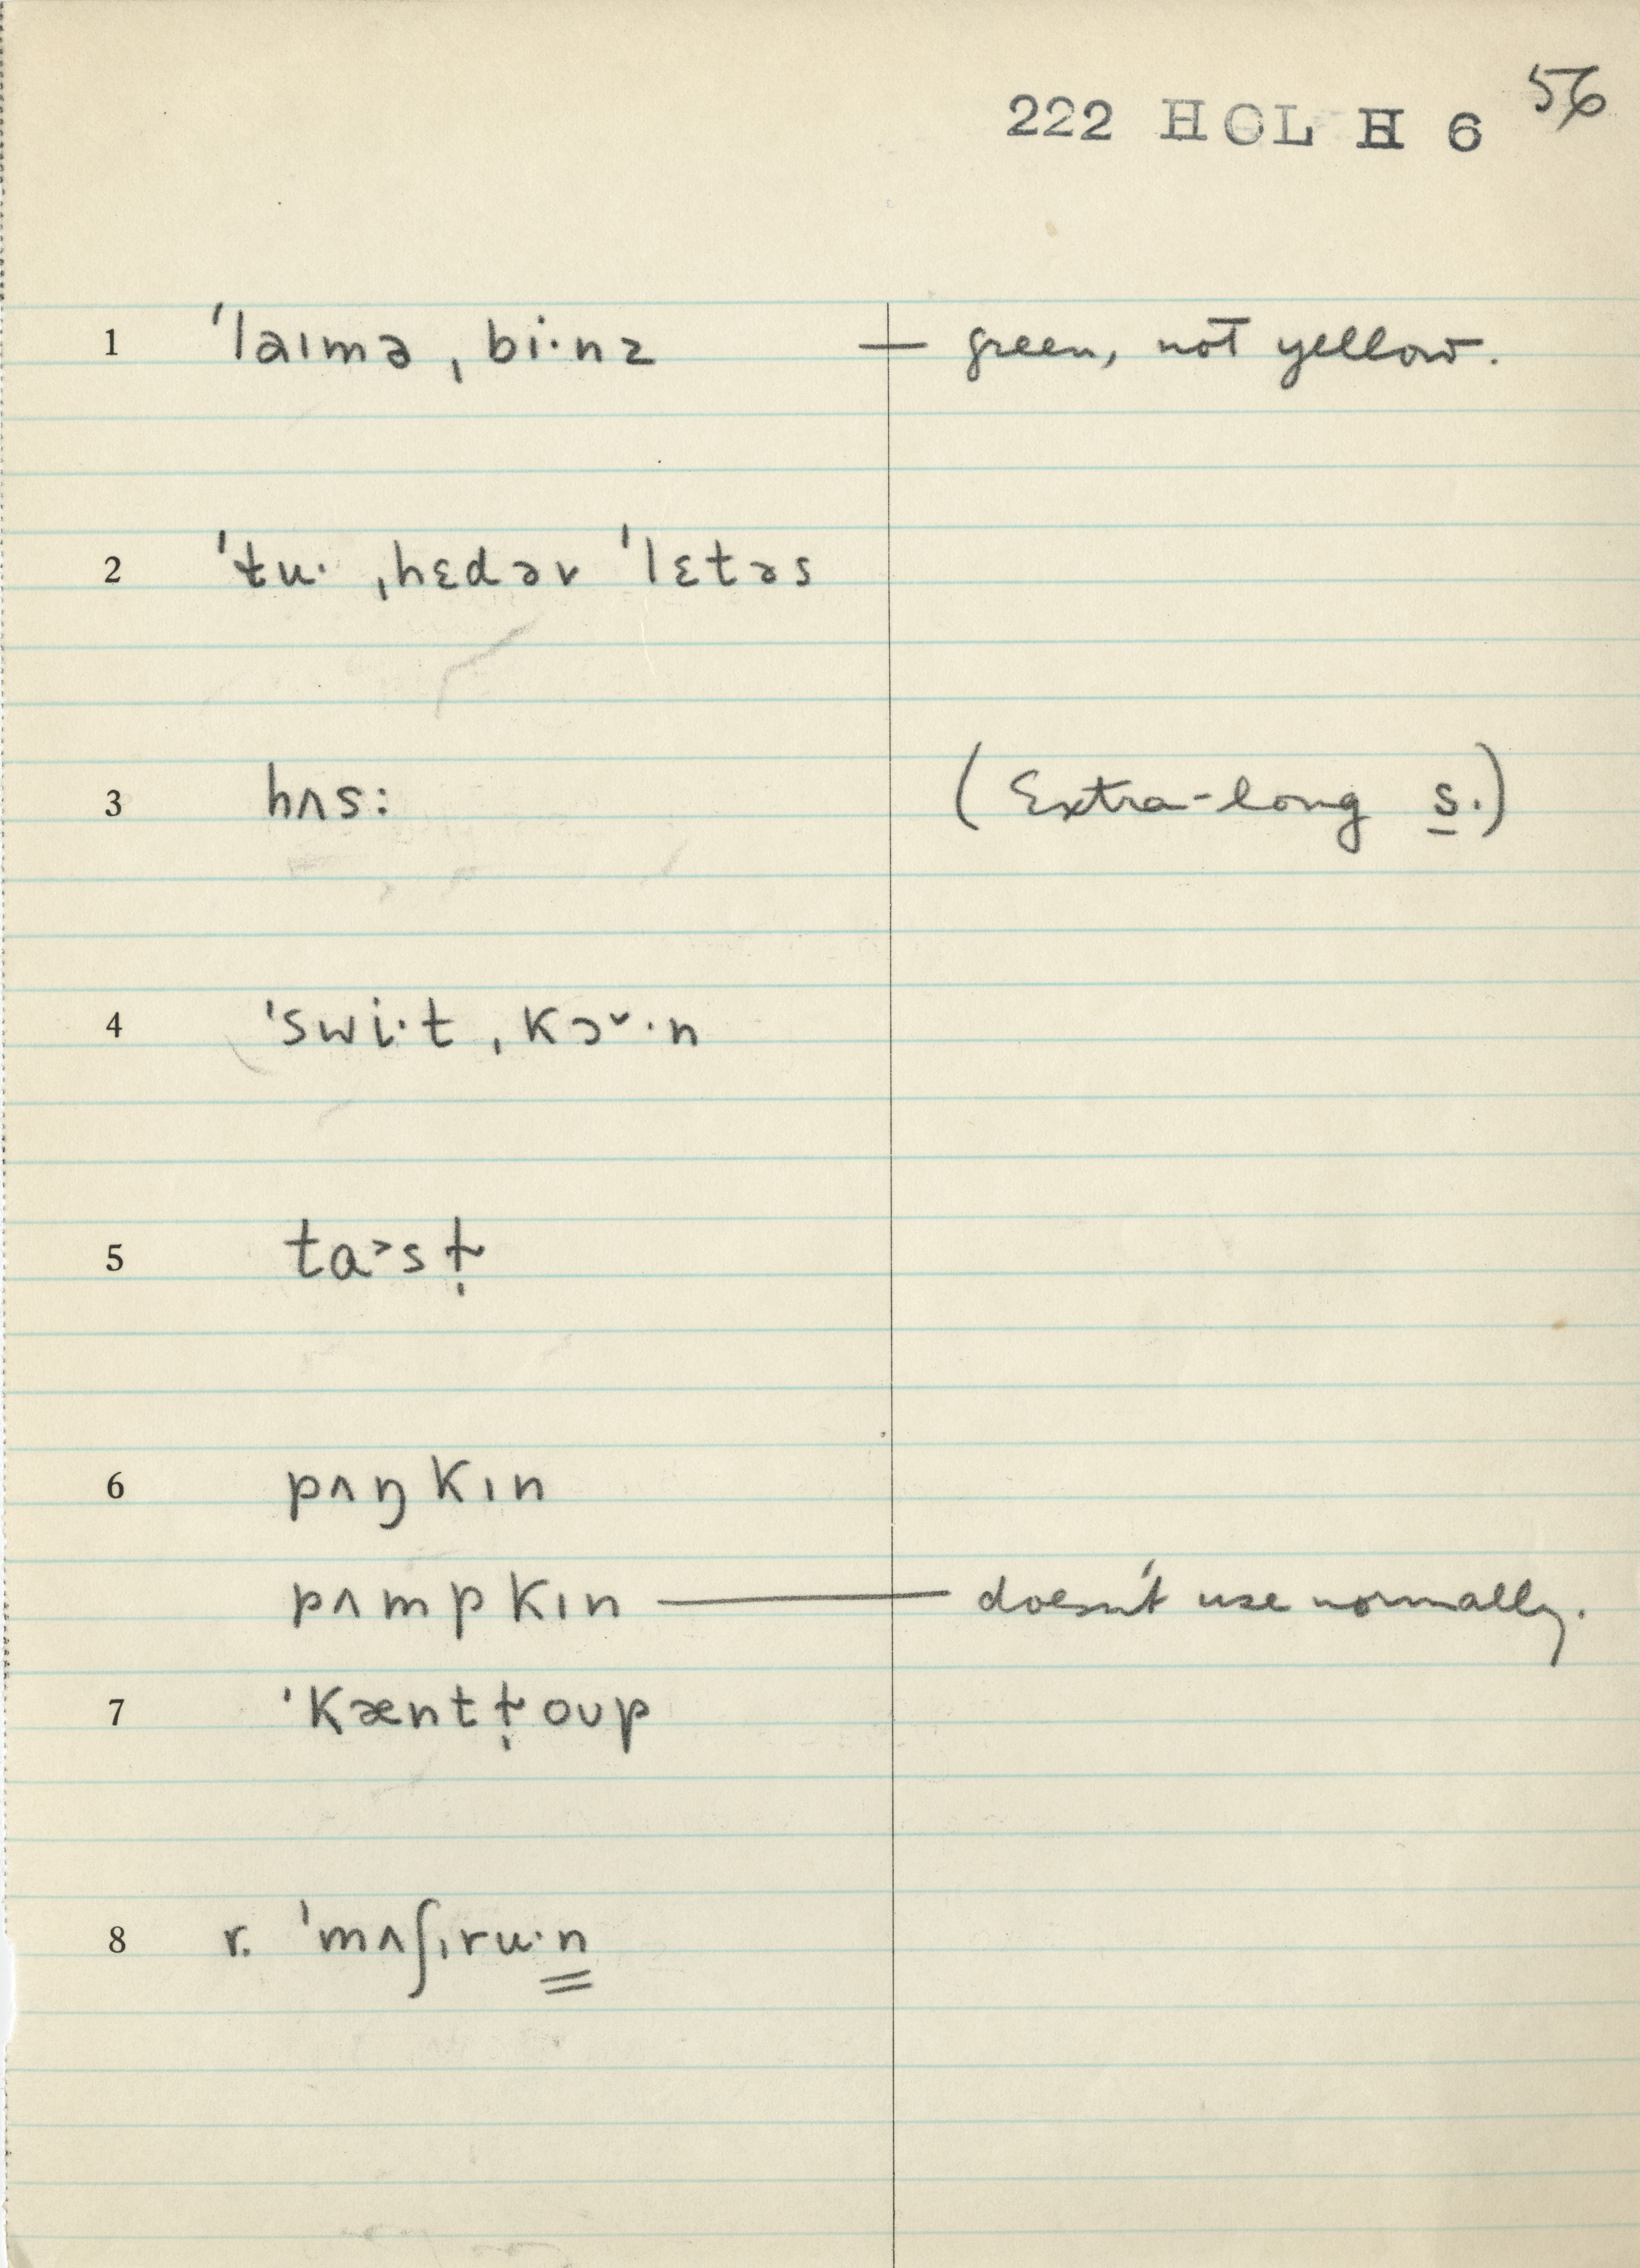 222 HOL H 6 56
1 ˈlaɪmə ˌbi·nz — green, not yellow.
2 ˈtu· ˌhɛdər ˈlɛtəs
3 hʌs: (Extra-long s.)
4 ˈswi·t ˌkɔ˅·n
5 ta˃sṭ
6 pʌŋkɪn
pʌmpkɪn — doesn't use normally.
7 ˈkænttˌoʊp
8 r. ˈmʌʃˌru·n